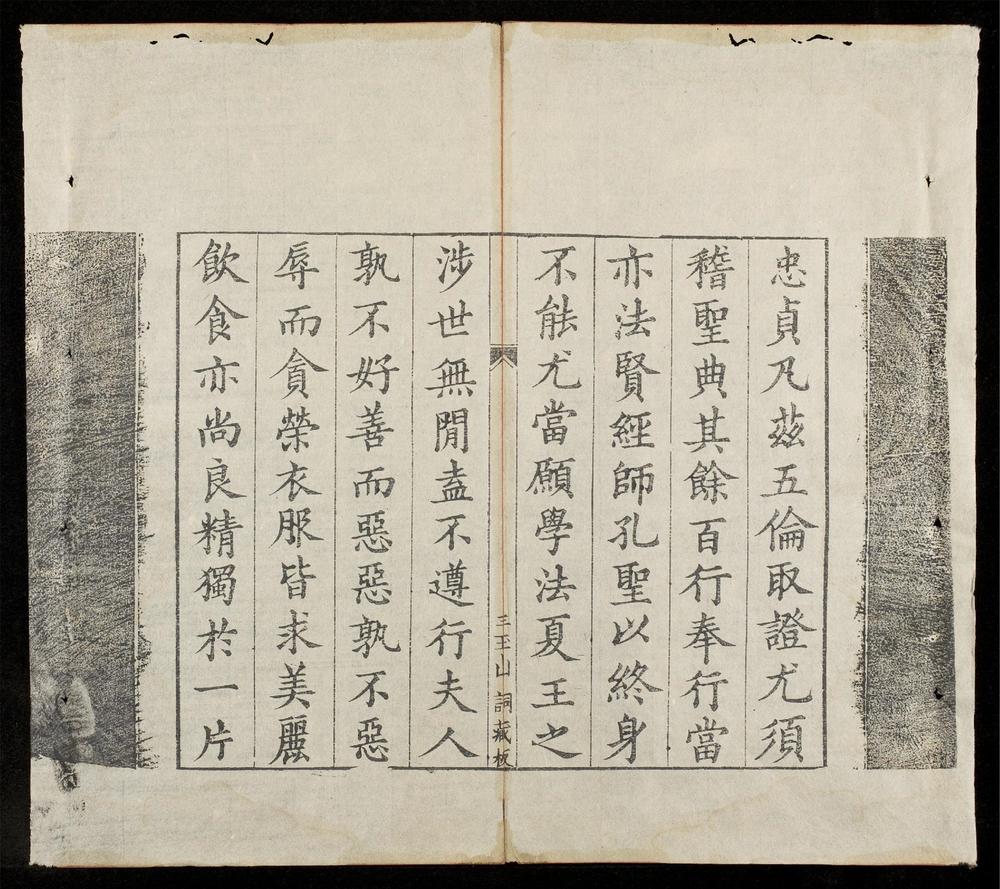 忠貞凡茲五倫取證尤須
稽聖典其餘百行奉行當
亦法賢經師孔聖以終身
不能尤當願學法夏王之
三至山詞藏板
涉世無閒盍不遵行夫人
孰不好善而惡惡孰不惡
辱而貪榮衣服皆求美麗
飲食亦尚良精獨於一片